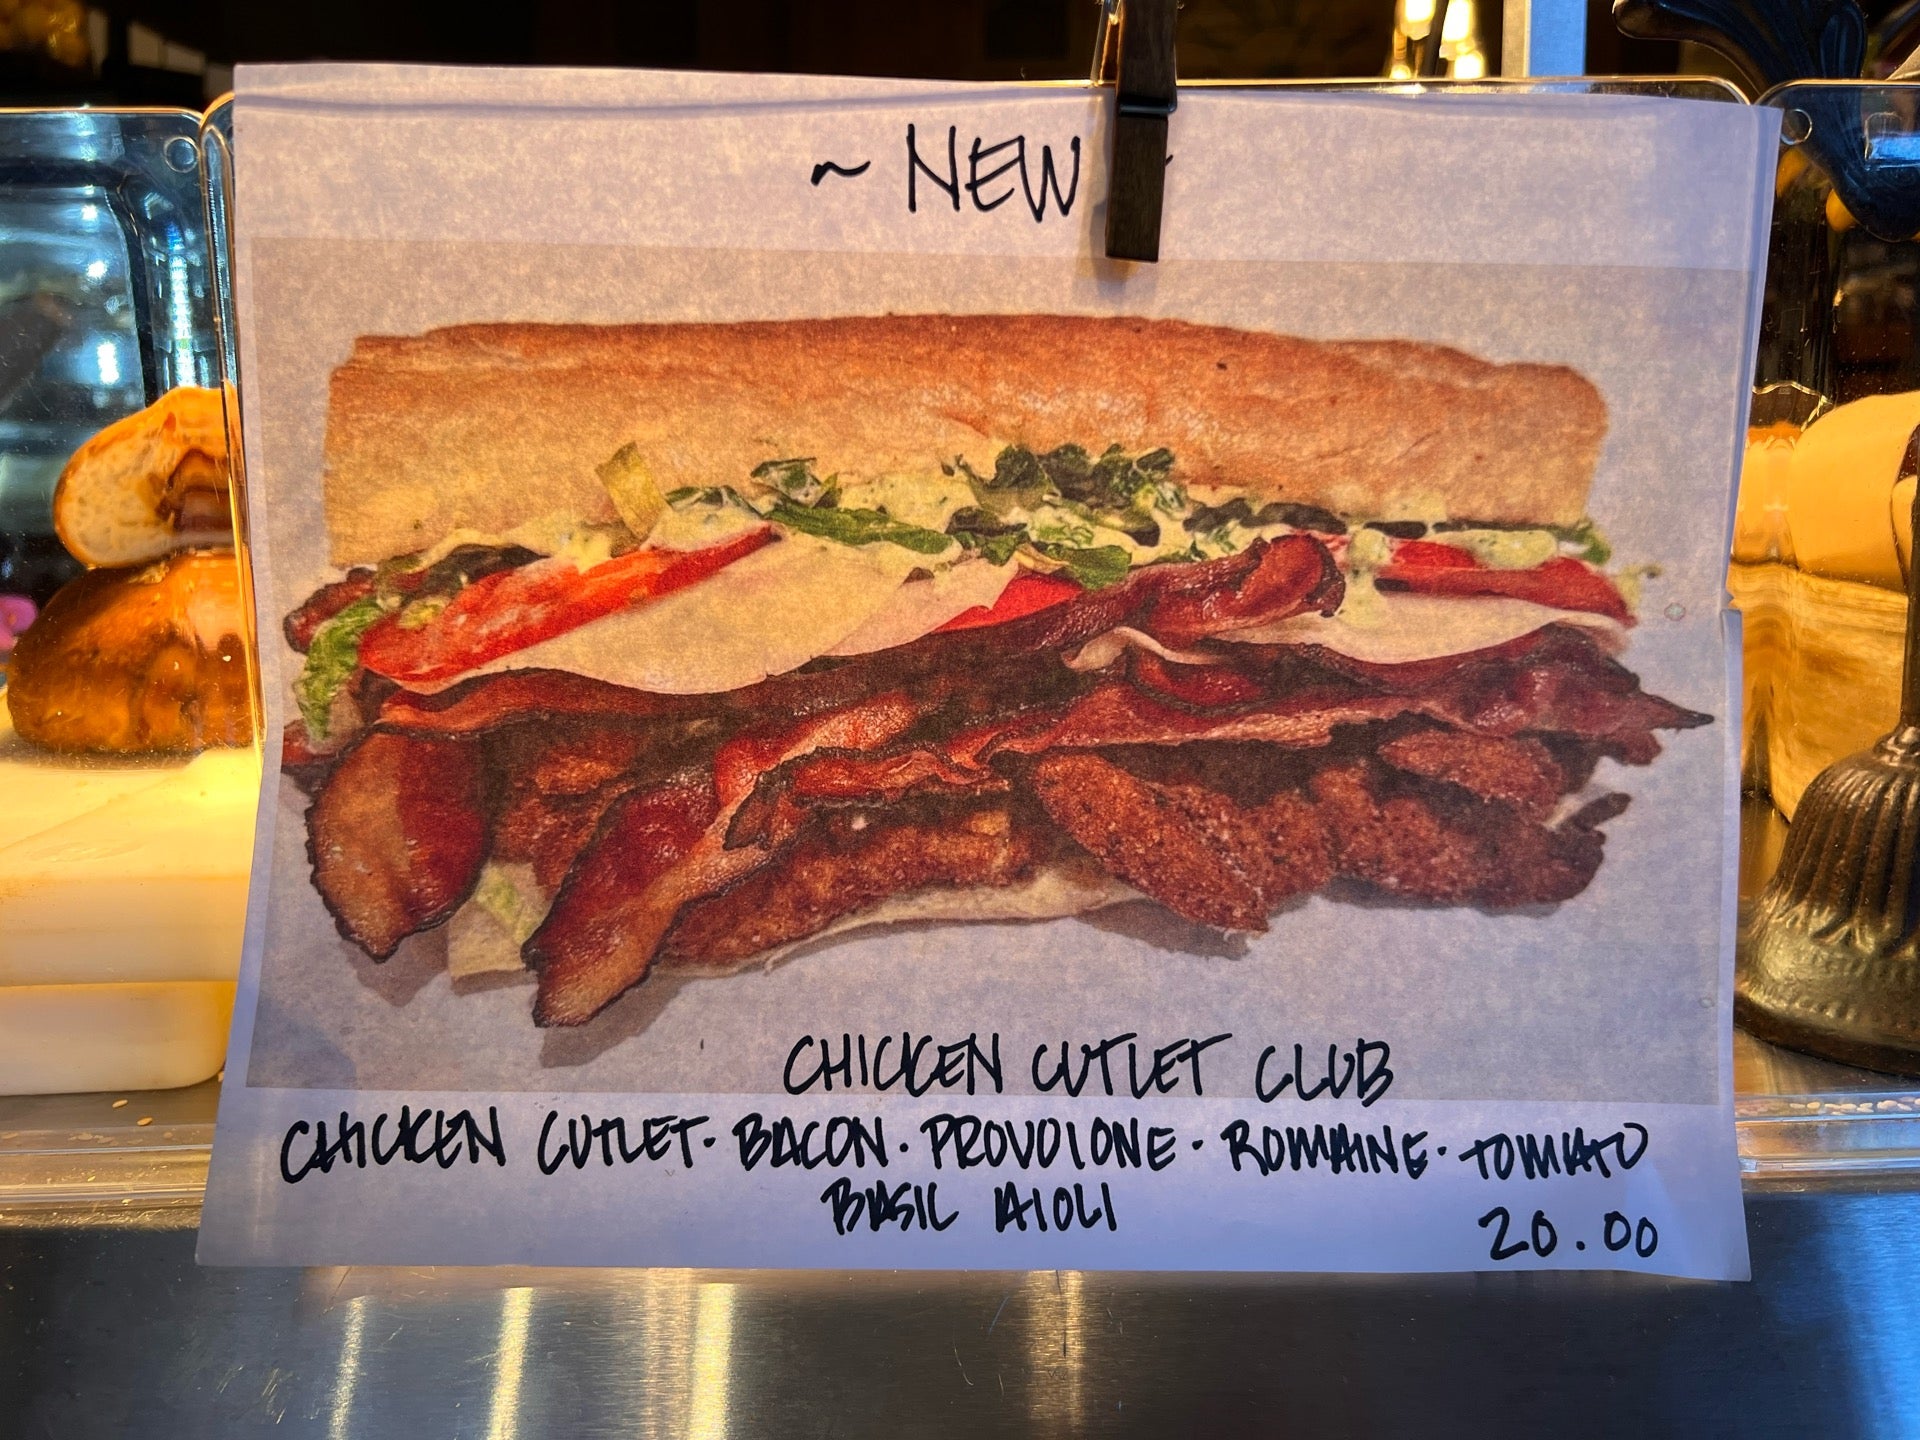 ~ NEW
CHICKEN CUTLET CLUB
CHICKEN CUTLET · BACON · PROVOLONE · ROMAINE · TOMATO
BASIL AIOLI
20.00